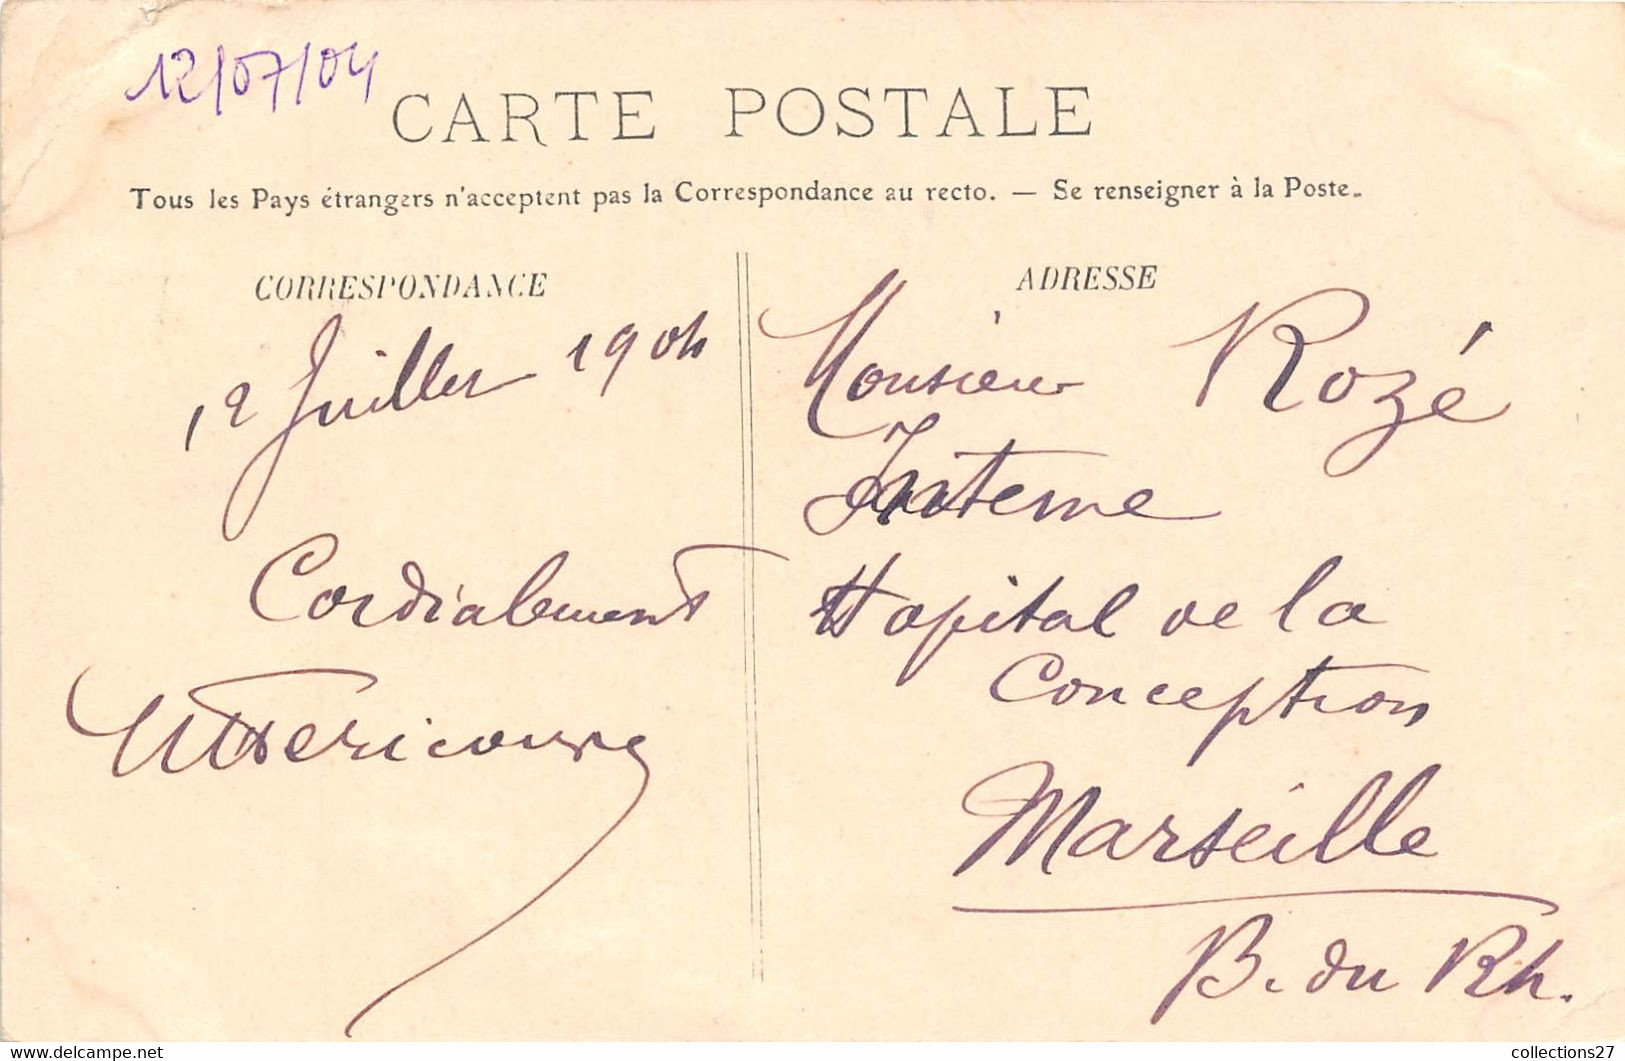 12/07/04
CARTE POSTALE
Tous les Pays étrangers n'acceptent pas la Correspondance au recto. — Se renseigner à la Poste.
CORRESPONDANCE
12 Juillet 1904
Cordialement
ADRESSE
Monsieur Rozé
Interne
Hopital de la
Conception
Marseille
B. du Rh.
collections27